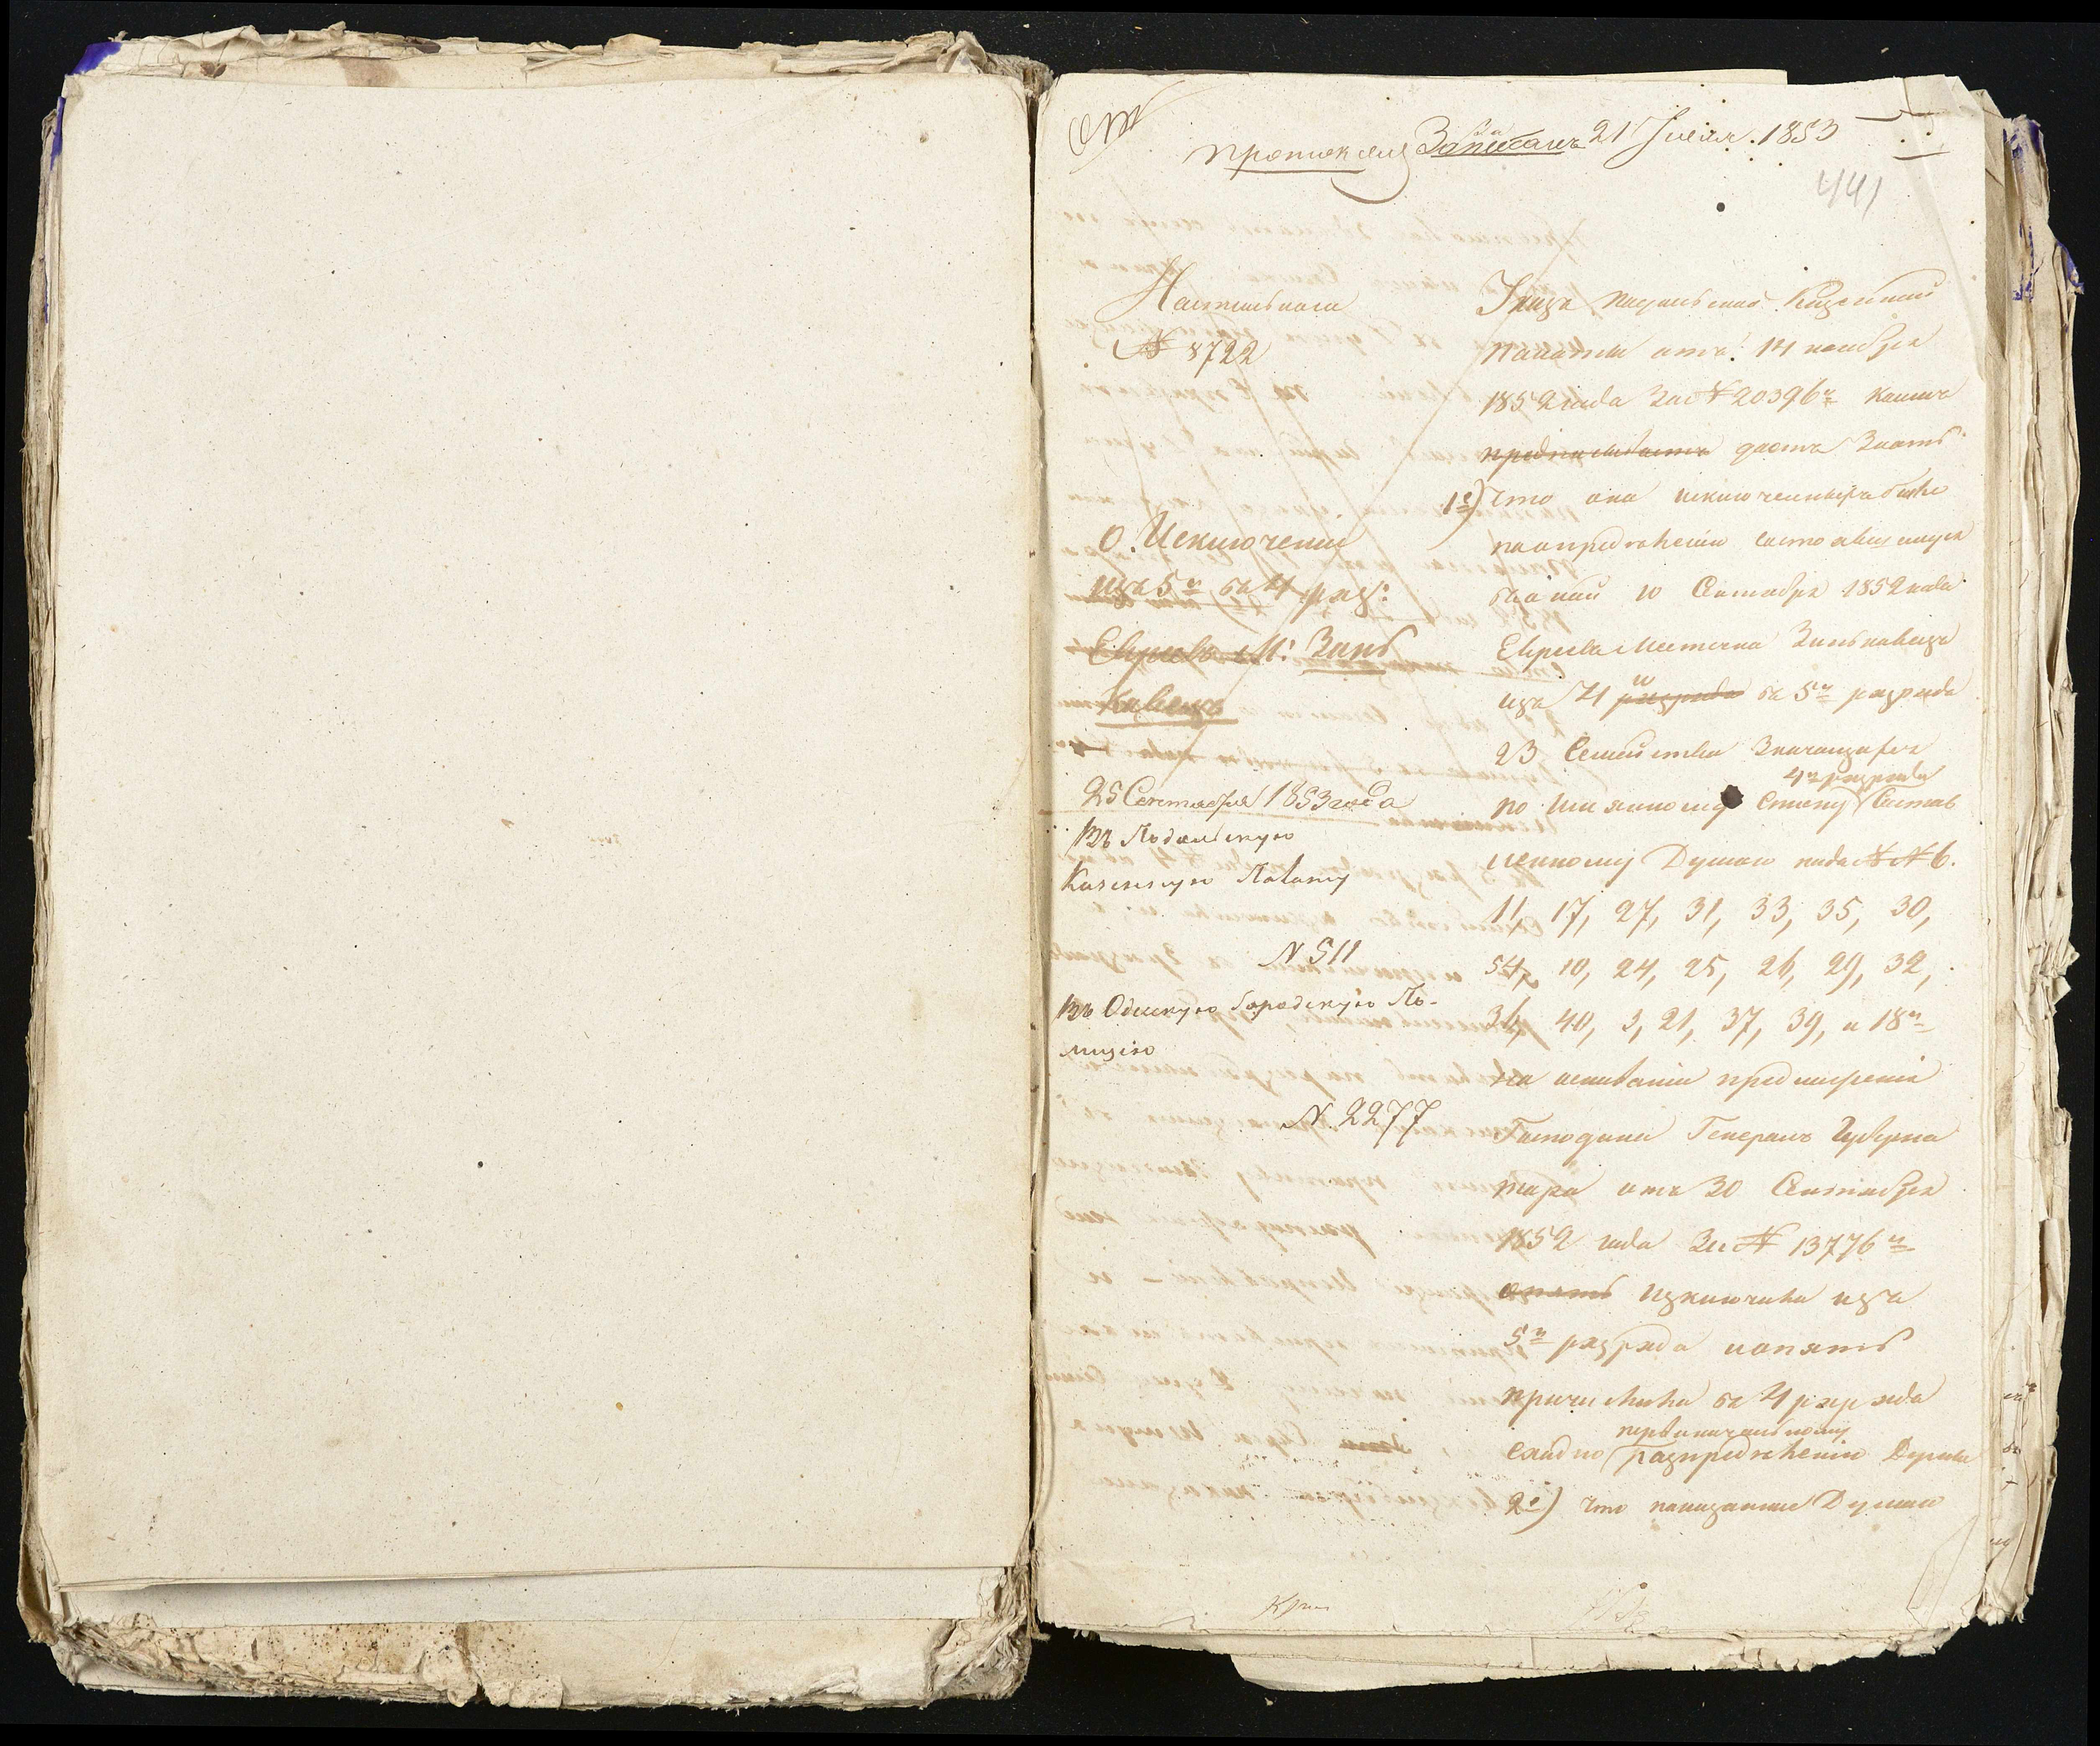 протоколъ Записанъ 21 Іюля 1853
441
Настольнаго
№ 8722
о Исключеніи
изъ 5го въ 4 раз:
Евреевъ М: Зинь
кавецъ
25 Сентября 1853 года
Въ Подольскую
Казенную Палату
№ 511
Въ Одескую Городскую По-
лицію
№ 2277
Указъ Подольской Казенной
палаты отъ 14 ноября
1852 года За № 20396м коимъ
предписываетъ даетъ Знать
1е) Что она исключенныхъ было
по опредѣленію состоявшемуся
10 Сентября 1852 года
Евреевъ Местечка Зиньковецъ
изъ 4го разряда въ 5й разрядъ
23 Семейства Значащихся
4го разряда
по имянному списку Состав
ленному Думою подъ № № 6.
11, 17, 27, 31, 33, 35, 30,
54, 10, 24, 25, 26, 29, 32,
36, 40, 3, 21, 37, 39, и 18м
на основаніи предписанія
Господина Генералъ Губерна
тора отъ 30 Сентября
1852 года За № 13776м
опять изключила изъ
5го разряда и опять
причислила въ 4 разрядъ
первоначальному
согласно распредѣленію Думы
2е) что показанные Думою